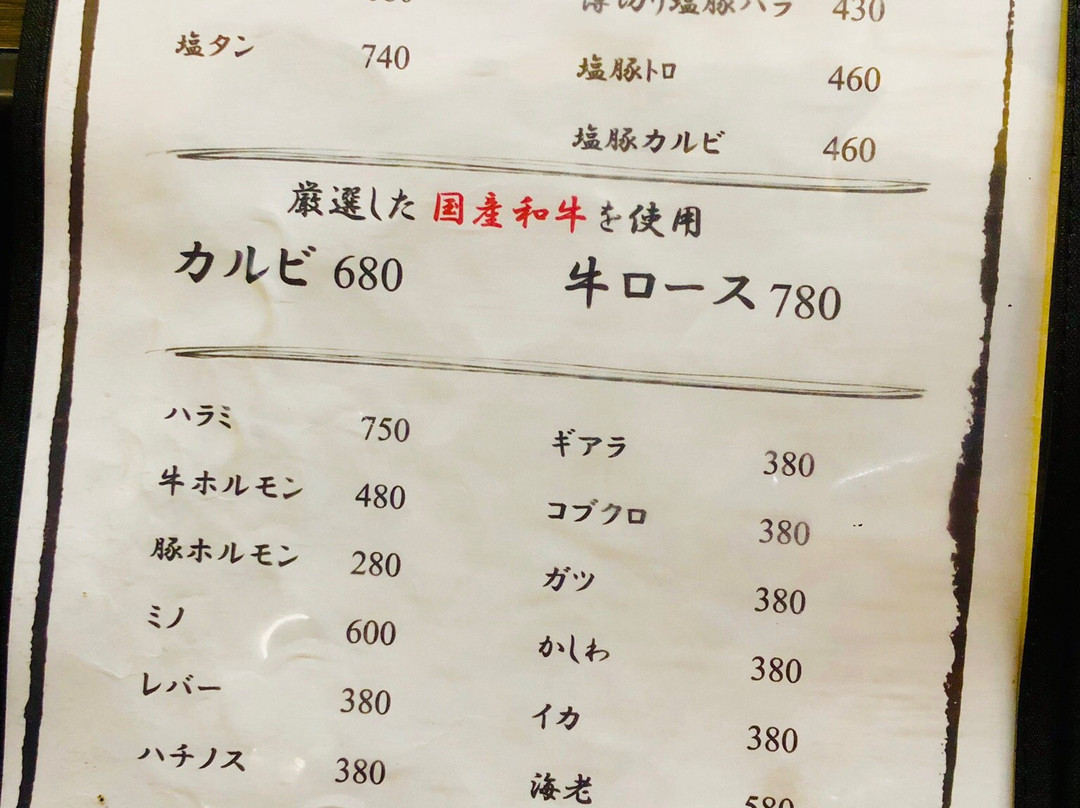 塩タン 740
薄切り塩豚バラ 430
塩豚トロ 460
塩豚カルビ 460
厳選した国産和牛を使用
カルビ 680
牛ロース 780
ハラミ 750
牛ホルモン 480
豚ホルモン 280
ミノ 600
レバー 380
ハチノス 380
ギアラ 380
コブクロ 380
ガツ 380
かしわ 380
イカ 380
海老 580